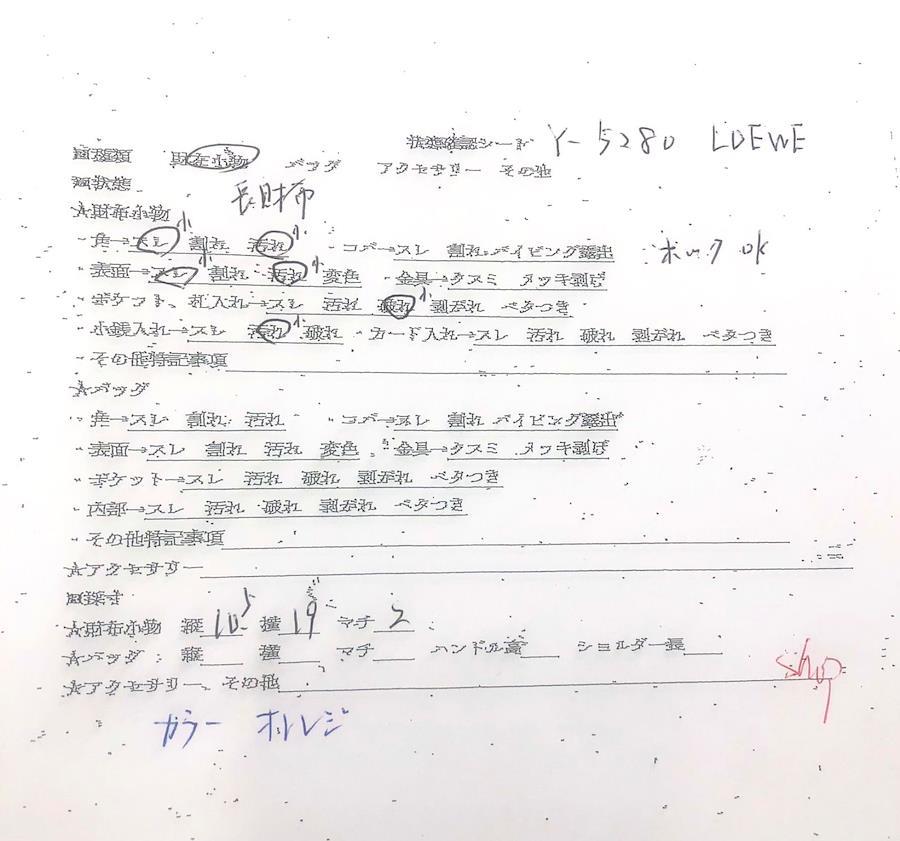 状態確認シート Y-5280 LOEWE
■種類 財布小物 バッグ アクセサリー その他
■状態 長財布
★財布小物
・角→スレ小 割れ 汚れ小 ・コバ→スレ 割れ パイピング露出 ホック OK
・表面→スレ小 割れ 汚れ小 変色 ・金具→クスミ メッキ剥げ
・ポケット、札入れ→スレ 汚れ 破れ小 剥がれ ベタつき
・小銭入れ→スレ 汚れ小 破れ ・カード入れ→スレ 汚れ 破れ 剥がれ ベタつき
・その他特記事項
★バッグ
・角→スレ 割れ 汚れ ・コバ→スレ 割れ パイピング露出
・表面→スレ 割れ 汚れ 変色 ・金具→クスミ メッキ剥げ
・ポケット→スレ 汚れ 破れ 剥がれ ベタつき
・内部→スレ 汚れ 破れ 剥がれ ベタつき
・その他特記事項
★アクセサリー
■採寸
★財布小物 縦 10.5 横 19 マチ 2
★バッグ : 縦 横 マチ ハンドル高 ショルダー長
★アクセサリー、その他
shop
カラー オレンジ